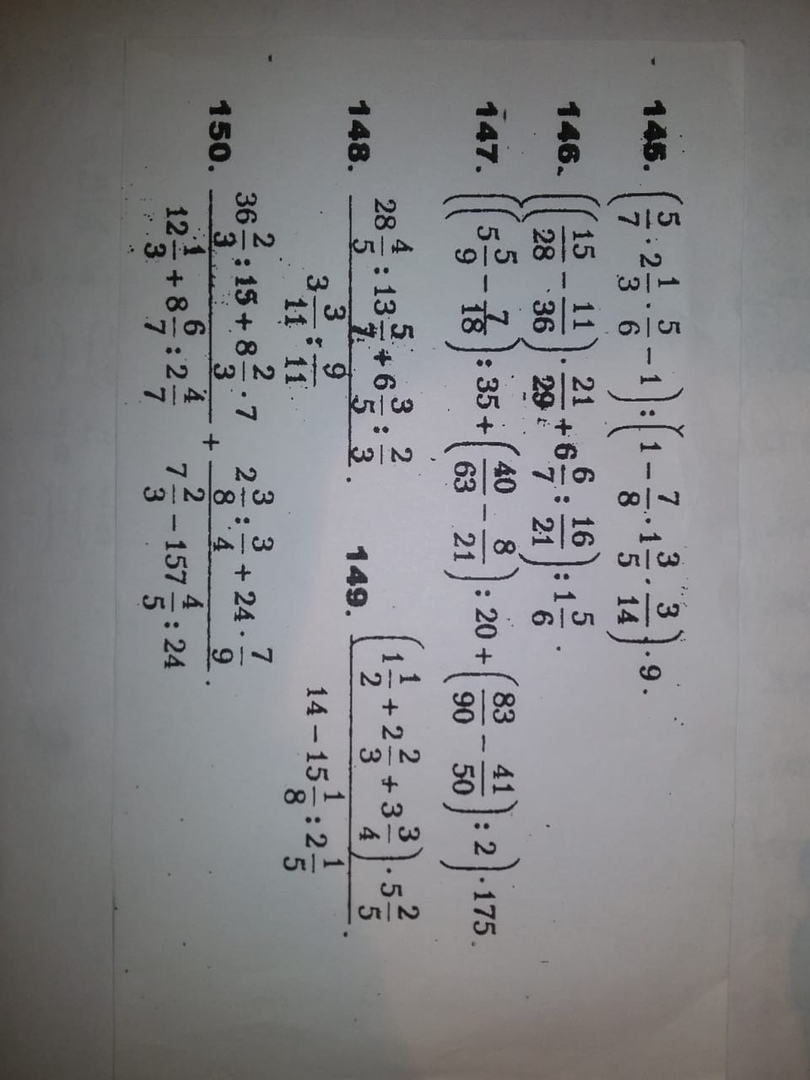 145. (5/7 : 2 1/3 · 5/6 − 1) : (1 − 7/8 · 1 3/5 · 3/14) · 9.
146. ((15/28 − 11/36) · 21/29 + 6 6/7 : 16/21) : 1 5/6.
147. ((5 5/9 − 7/18) : 35 + (40/63 − 8/21) : 20 + (83/90 − 41/50) : 2) · 175.
148. (28 4/5 : 13 5/7 + 6 3/5 : 2/3) / (3 3/11 : 9/11).
149. ((1 1/2 + 2 2/3 + 3 3/4) · 5 2/5) / (14 − 15 1/8 : 2 1/5).
150. (36 2/3 : 15 + 8 2/3 · 7) / (12 1/3 + 8 6/7 : 2 4/7) + (2 3/8 : 3/4 + 24 · 7/9) / (7 2/3 − 157 4/5 : 24).